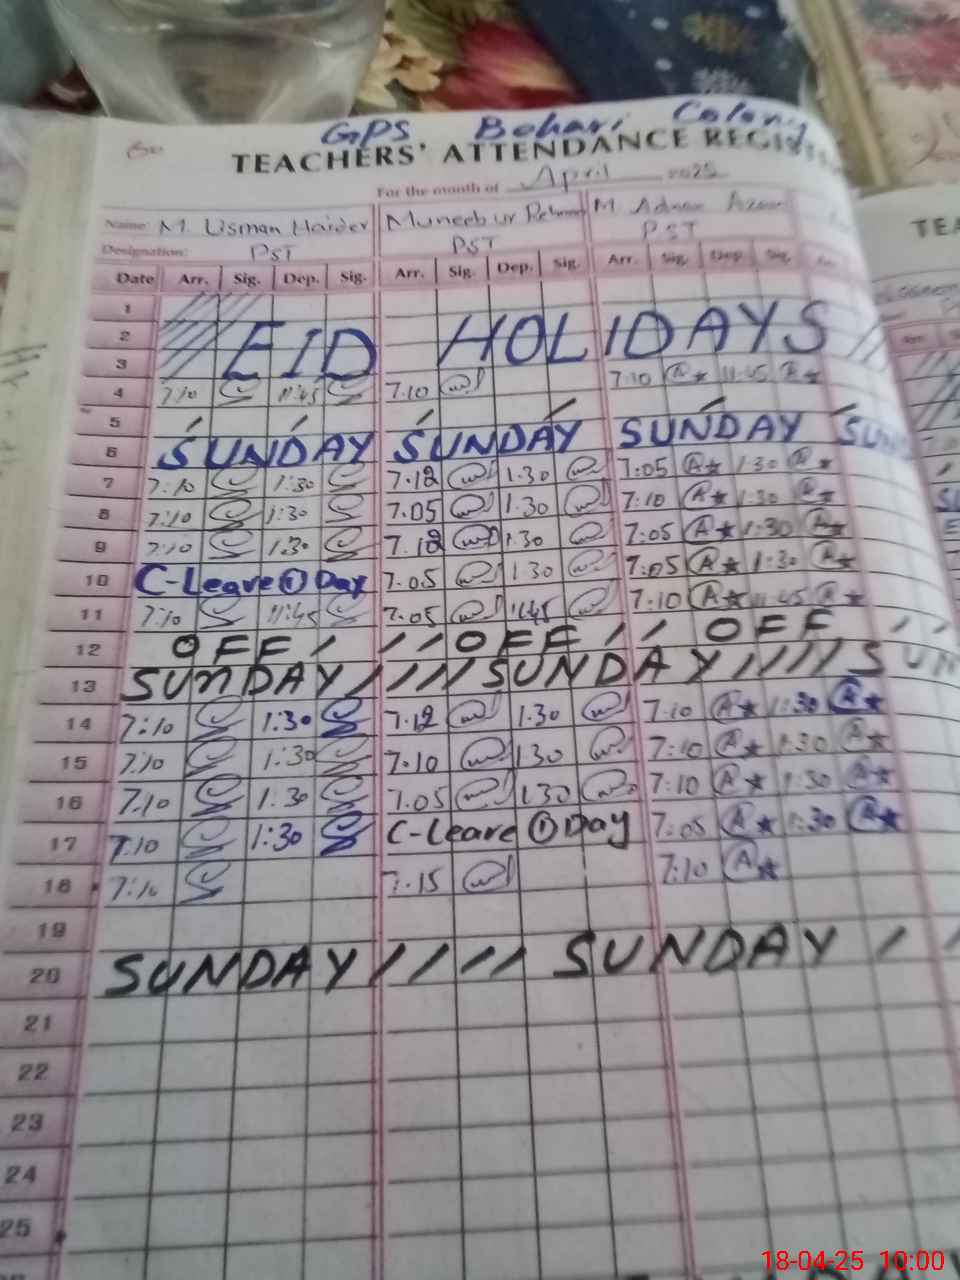 GPS Behari Colony
TEACHERS' ATTENDANCE
For the month of April 2025
Name: M. Usman Haider Muneeb ur Rehman M. Adnan
Designation: PST PST PST
Date Arr. Sig. Dep. Sig. Arr. Sig. Dep. Sig. Arr. Sig. Dep. Sig.
1
2 EID HOLIDAYS
3
4 7:10 11:45 7.10 7:10 A 11:45 A
5
6 SUNDAY SUNDAY SUNDAY SUN
7 7:10 1:30 7.12 1.30 7:05 A 1:30 A
8 7:10 1:30 7.05 1.30 7:10 A 1:30 A
9 7:10 1:30 7.12 1.30 7:05 A 1:30 A
10 C-Leave 1 Day 7.05 1.30 7:05 A 1:30 A
11 7:10 11:45 7.05 11.45 7:10 A 11:45 A
12 OFF OFF OFF
13 SUNDAY SUNDAY SUN
14 7:10 1:30 7.12 1.30 7:10 A 1:30 A
15 7:10 1:30 7.10 1.30 7:10 A 1:30 A
16 7:10 1:30 7.05 1.30 7:10 A 1:30 A
17 7:10 1:30 C-Leave 1 Day 7:05 A 1:30 A
18 7:10 7.15 7:10 A
19
20 SUNDAY SUNDAY
21
22
23
24
25
18-04-25 10:00